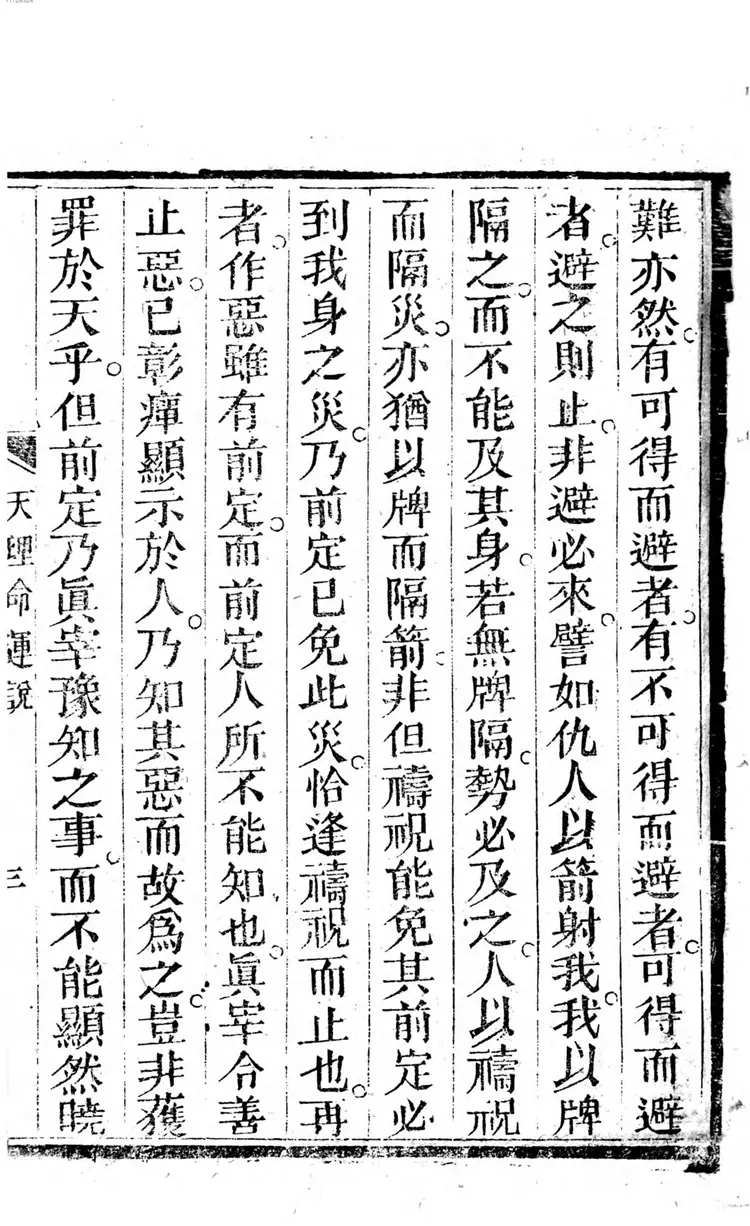 難亦然。有可得而避者。有不可得而避者。可得而避
者。避之則止。非避必來。譬如仇人以箭射我。我以牌
隔之。而不能及其身。若無牌隔。勢必及之。人以禱祝
而隔災。亦猶以牌而隔箭。非但禱祝能免其前定必
到我身之災。乃前定已免此災。恰逢禱祝而止也。再
者。作惡雖有前定。而前定人所不能知也。眞宰令善
止惡。已彰癉顯示於人。乃知其惡而故爲之。豈非獲
罪於天乎。但前定乃眞宰豫知之事。而不能顯然曉
天理命運說
三